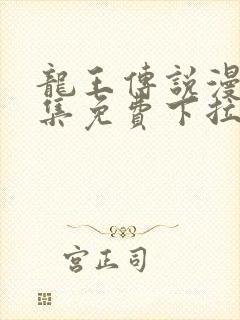 龍王傳說漫
集免費下拉
宮正司